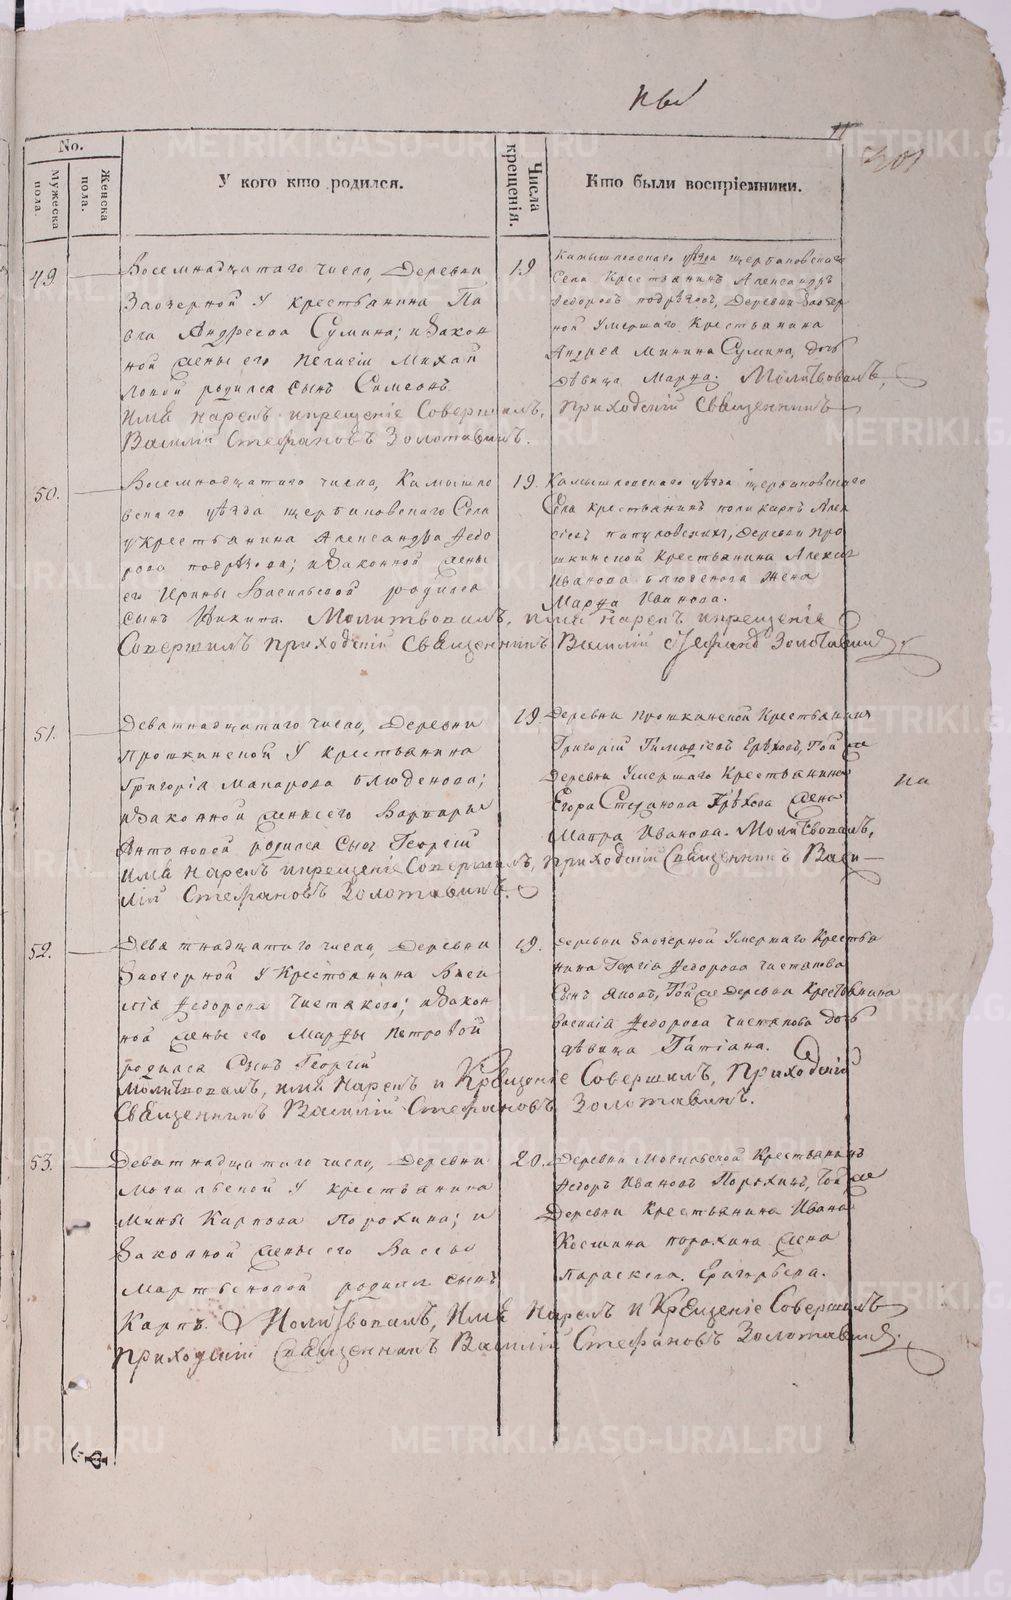 301
No.
Мужеска пола.
Женска пола.
У кого кто родился.
Числа крещенія.
Кто были воспріемники.
49.
Восемнадцатаго число, Деревни
Заозерной у крестьянина Па
вла Андреева Сумина; и закон
ной жены его Пелагіи Михай
ловой родился сынъ Симеонъ
Имя нарекъ и крещеніе Совершилъ,
Василій Стефановъ Золотавинъ.
19
Камышловскаго уѣзда щербаковскаго
Села Крестьянинъ Александръ
Федоровъ подрѣзовъ, Деревни Заозер
ной Умершаго Крестьянина
Андрея Минина Сумина, дочь
дѣвица Марѳа. Молитвовалъ,
приходскій Священникъ
50.
Восемнадцатаго числа, Камышло
вскаго уѣзда щербаковскаго Села
у крестьянина Александра Федо
рова подрѣзова; и законной жены
его Ирины Васильевой родился
сынъ Никита. Молитвовалъ, имя нарекъ и крещеніе
Совершилъ приходскій Священникъ Василій Стефановъ Золотавинъ
19.
Камышловскаго уѣзда щербаковскаго
Села крестьянинъ поликарпъ Алек
сіевъ
деревни про
шкинской крестьянина Алексія
Иванова блюденова жена
Марѳа Иванова.
51.
Девятнадцатаго числа, Деревни
Прошкинской у крестьянина
Григорія Макарова блюденова;
и законной жены его Варвары
Антоновой родился Сынъ Георгій
Имя нарекъ и крещеніе Совершилъ, приходскій Священникъ Васи
лій Стефановъ Золотавинъ.
19
Деревни Прошкинской Крестьянинъ
Григорій
той же
Деревни Умершаго Крестьянина
Егора Степанова
жена
Мавра Иванова. Молитвовалъ,
52.
Девятнадцатаго числа, Деревни
Заозерной у Крестьянина Васи
лія Федорова Чистякова; и закон
ной жены его Марѳы Петровой
родился Сынъ Георгій
Молитвовалъ, имя нарекъ и Крещеніе Совершилъ, Приходскій
Священникъ Василій Стефановъ Золотавинъ.
19.
Деревни Заозерной Умершаго Крестья
нина Георгія Федорова чистякова
Сынъ Яковъ, Той же Деревни Крестьянина
Василія Федорова чистякова дочь
дѣвица Татіана.
53.
Девятнадцатаго число, Деревни
Могильской у крестьянина
Мины Карпова Порохина; и
Законной жены его Вассы
Мартьеновой родился сынъ
Карпъ. Молитвовалъ, Имя Нарекъ и Крещеніе Совершилъ
приходскій Священникъ Василій Стефановъ Золотавинъ.
20.
Деревни Могильской Крестьянинъ
Федоръ Ивановъ Порохинъ, той же
Деревни Крестьянина Ивана
Космина порохина жена
Параскева Григорьева.